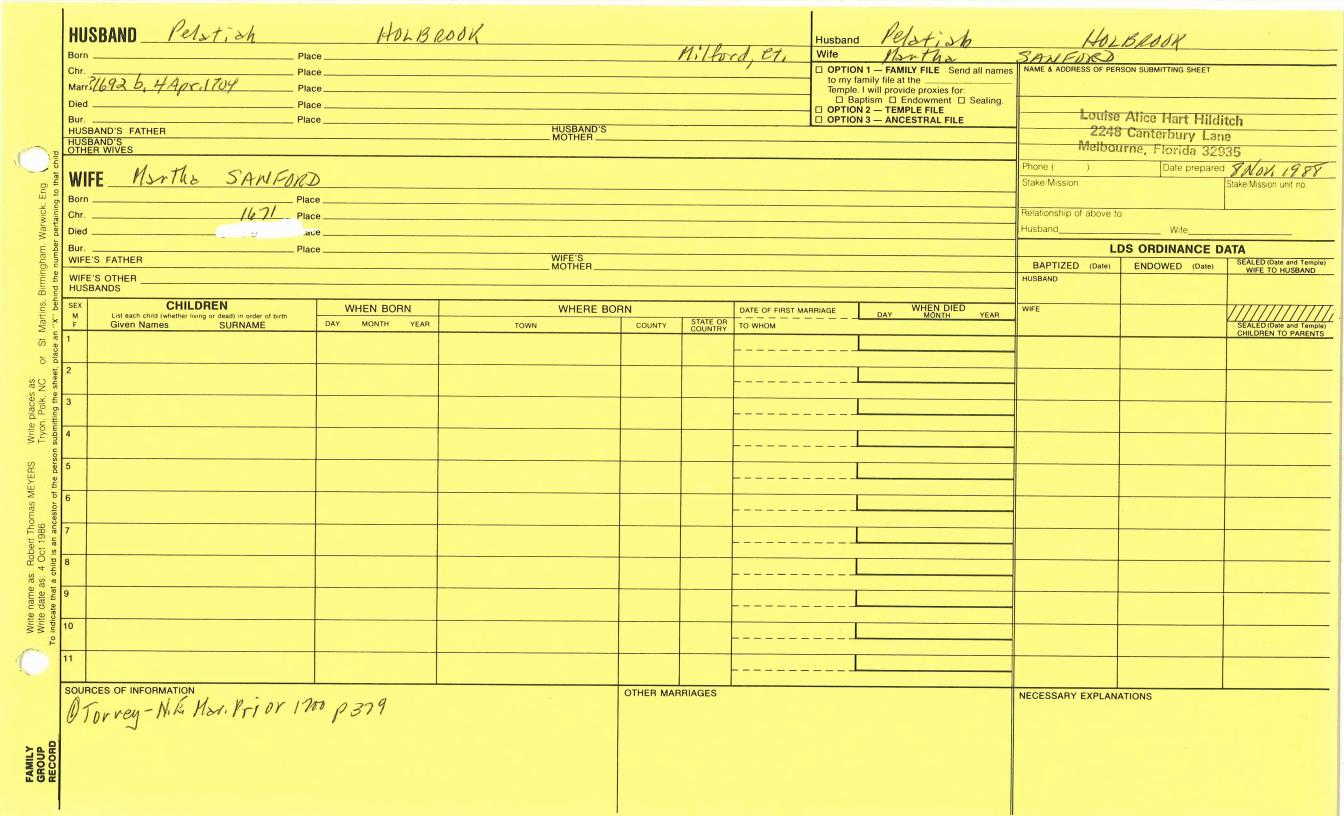 HUSBAND Pelatiah HOLBROOK
Born Place Milford, Ct.
Chr. Place
Marr. ?1692 b. 4 Apr. 1704 Place
Died Place
Bur. Place
HUSBAND'S FATHER HUSBAND'S MOTHER
HUSBAND'S OTHER WIVES
Husband Pelatiah HOLBROOK
Wife Martha SANFORD
☐ OPTION 1 — FAMILY FILE Send all names
to my family file at the
Temple. I will provide proxies for:
☐ Baptism ☐ Endowment ☐ Sealing.
☐ OPTION 2 — TEMPLE FILE
☐ OPTION 3 — ANCESTRAL FILE
NAME & ADDRESS OF PERSON SUBMITTING SHEET
Louise Alice Hart Hilditch
2248 Canterbury Lane
Melbourne, Florida 32935
Phone ( ) Date prepared 8 Nov. 1988
Stake/Mission Stake/Mission unit no.
Relationship of above to
Husband Wife
WIFE Martha SANFORD
Born Place
Chr. 1671 Place
Died
Bur. Place
WIFE'S FATHER WIFE'S MOTHER
WIFE'S OTHER HUSBANDS
LDS ORDINANCE DATA
BAPTIZED (Date) ENDOWED (Date) SEALED (Date and Temple) WIFE TO HUSBAND
HUSBAND
WIFE
SEALED (Date and Temple) CHILDREN TO PARENTS
SEX M F
CHILDREN
List each child (whether living or dead) in order of birth
Given Names SURNAME
WHEN BORN
DAY MONTH YEAR
WHERE BORN
TOWN COUNTY STATE OR COUNTRY
DATE OF FIRST MARRIAGE
TO WHOM
WHEN DIED
DAY MONTH YEAR
1
2
3
4
5
6
7
8
9
10
11
SOURCES OF INFORMATION
① Torrey - N.E. Mar. Prior 1700 p 379
OTHER MARRIAGES
NECESSARY EXPLANATIONS
Write name as: Robert Thomas MEYERS Write places as: Tryon, Polk, NC or St. Martins, Birmingham, Warwick, Eng.
Write date as: 4 Oct 1986
To indicate that a child is an ancestor of the person submitting the sheet, place an "X" behind the number pertaining to that child
FAMILY GROUP RECORD